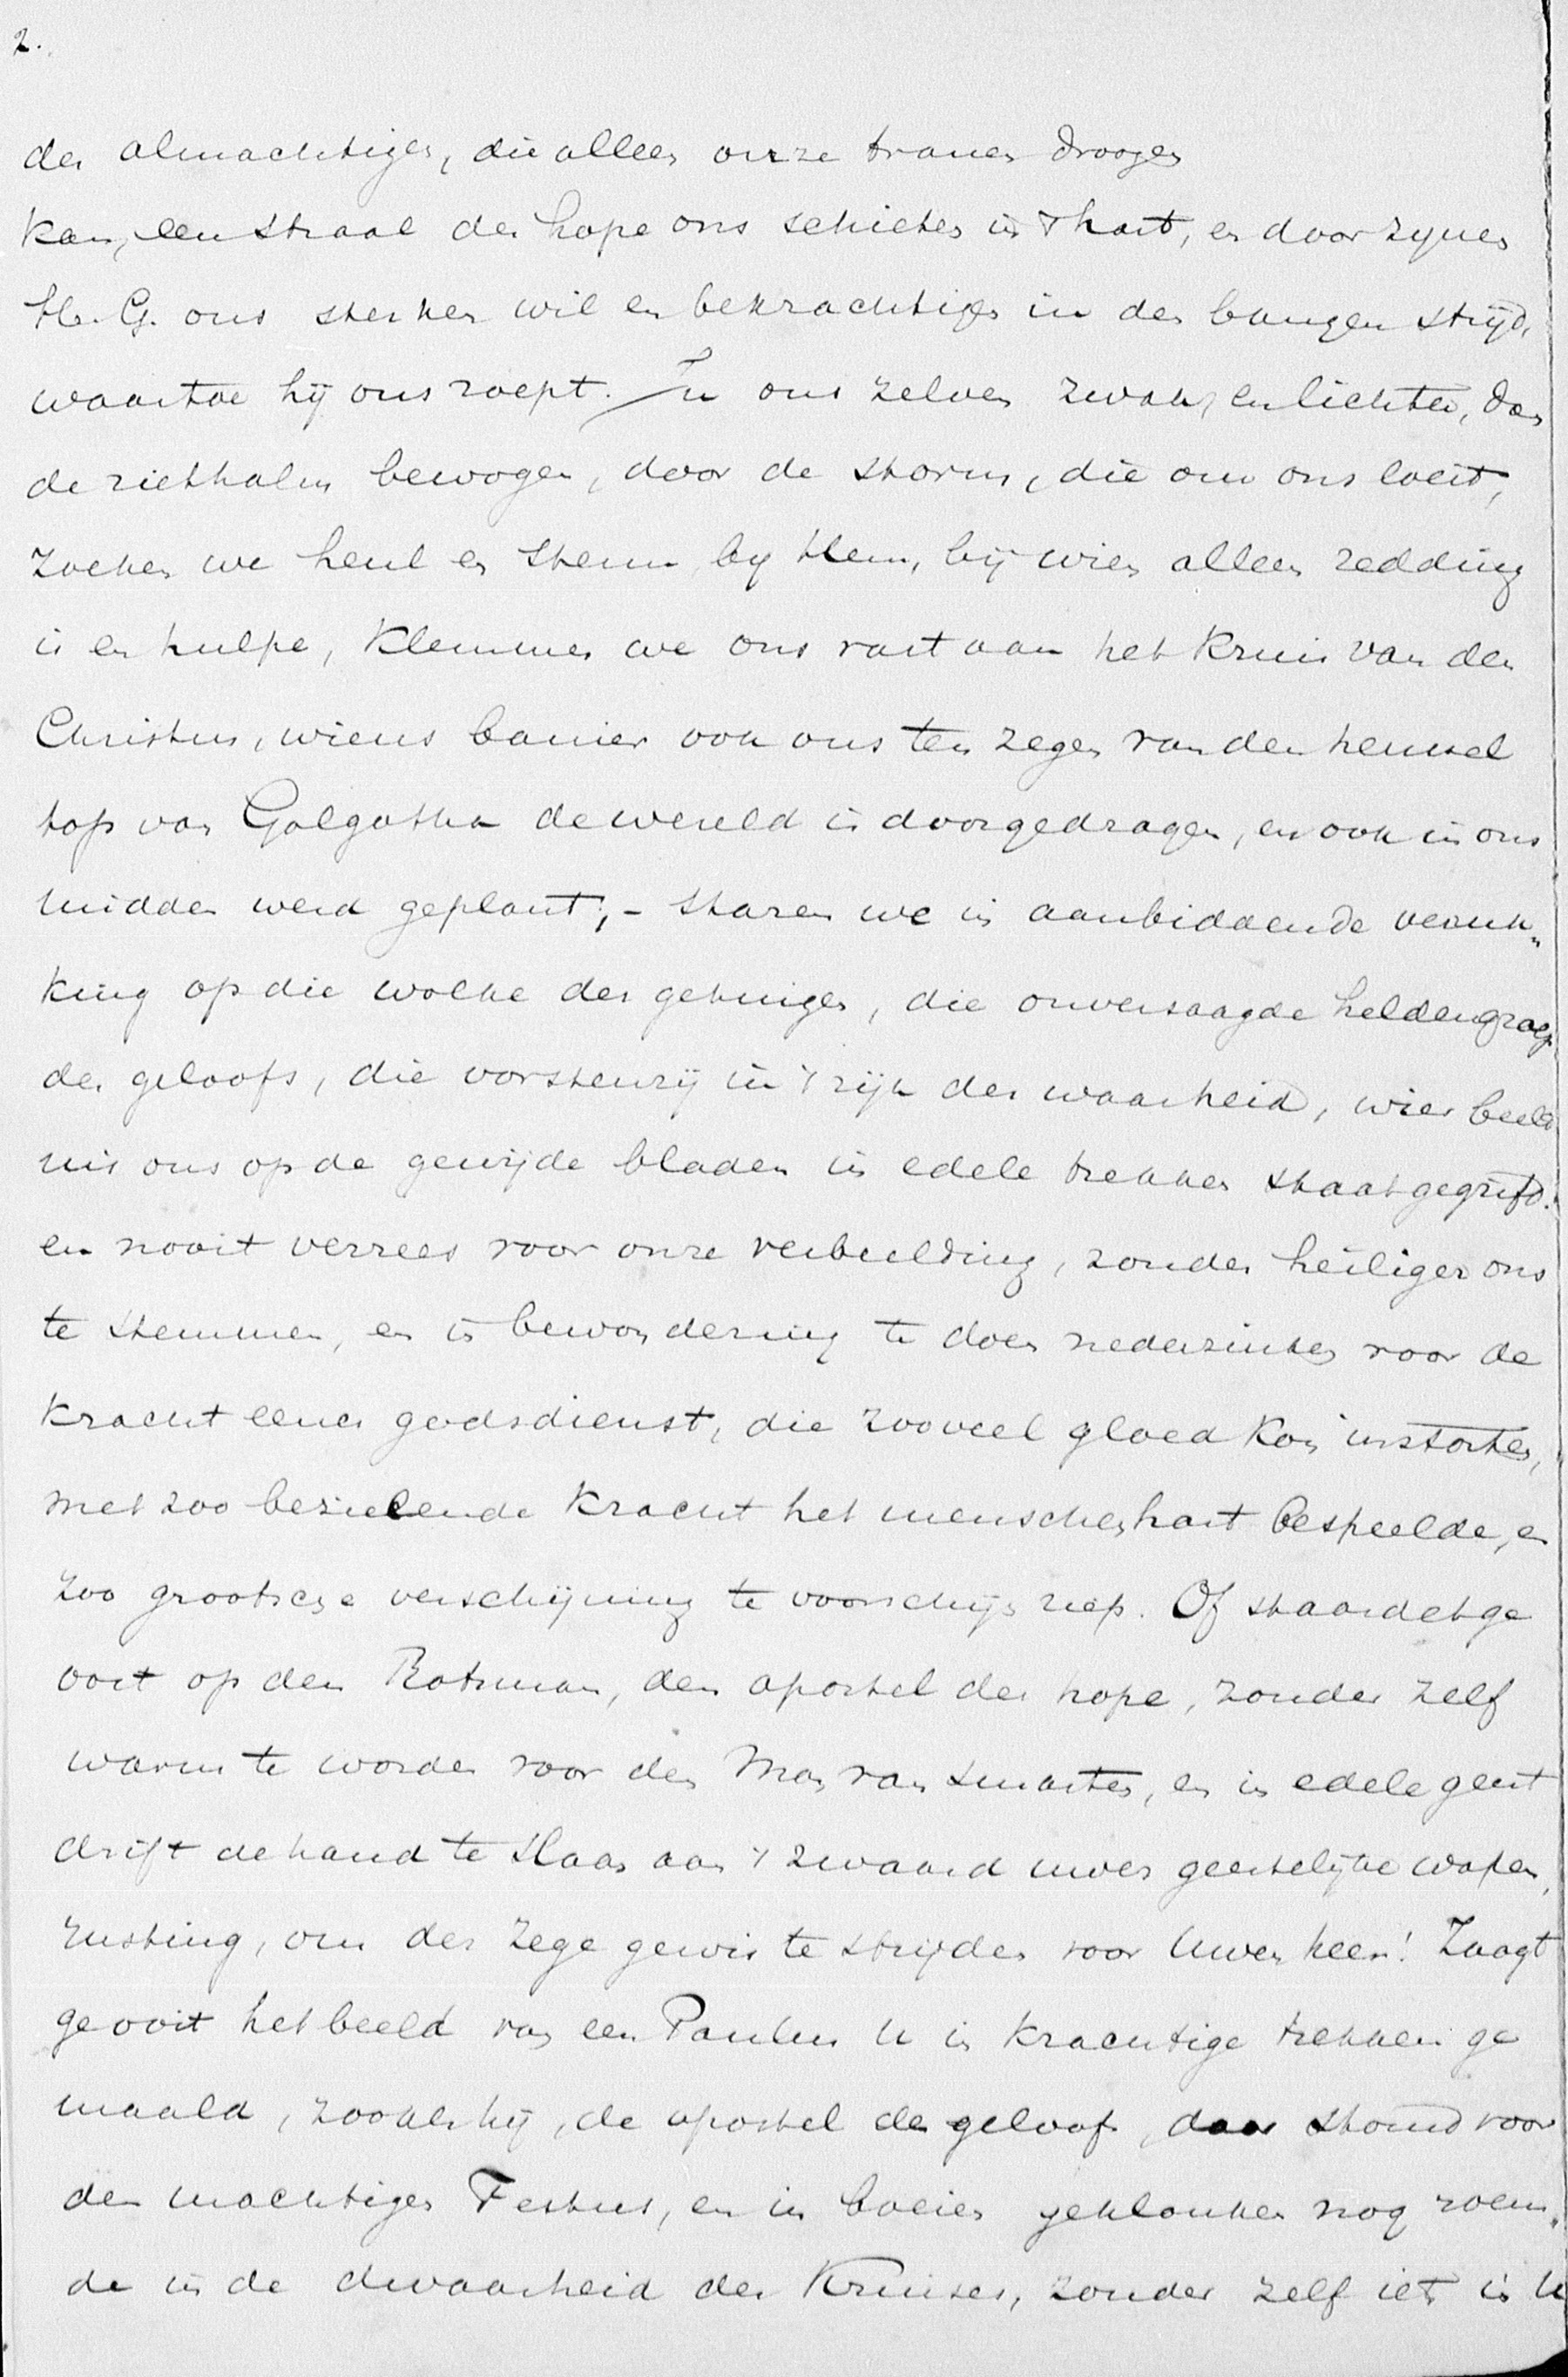 2.
den almachtigen, die alleen onze tranen droogen
kan, een straal der hope ons schieten in 't hart, en door zynen
H. G. ons sterken wil en bekrachtigen in den bangen strijd,
waartoe hij ons roept. In ons zelven zwak, en lichter, dan
de riethalm bewogen, door de storm, die om ons loeit,
zoeken we heul en steun by Hem, bij wien alleen redding
is en hulpe, klemmen we ons vast aan het kruis van den
Christus, wiens banier ook ons ten zegen van den heuvel
top van Golgotha de wereld is doorgedragen, en ook in ons
midden werd geplant; - staren we in aanbiddende verruk„
king op die wolke der getuigen, die onversaagde heldengroep
des geloofs, die vorstenrij in 't rijk der waarheid, wier beeld
nis ons op de gewijde bladen in edele trekken staat gegrift.
en nooit verrees voor onze verbeelding, zonder heiliger ons
te stemmen, en in bewondering te doen nederzinken voor de
kracht eener godsdienst, die zooveel gloed kon instorten,
met zoo bezielende kracht het menschenhart bespeelde, en
zoo grootsche verschijning te voorschijn riep. Of staardet ge
ooit op den Rotsman, den apostel der hope, zonder zelf
warm te worden voor den Man van smarten, en in edele geest
drift de hand te slaan aan 't zwaard uwer geestelijke wapen
rusting, om der zege gewis te strijden voor Uwen heer! Zaagt
ge ooit het beeld van een Paulus U in krachtige trekken ge
maald, zooals hij, de apostel des geloofs, daar stond voor
den machtigen Festus, en in boeien geklonken nog roem„
de in de dwaasheid des Kruises, zonder zelf iets in U